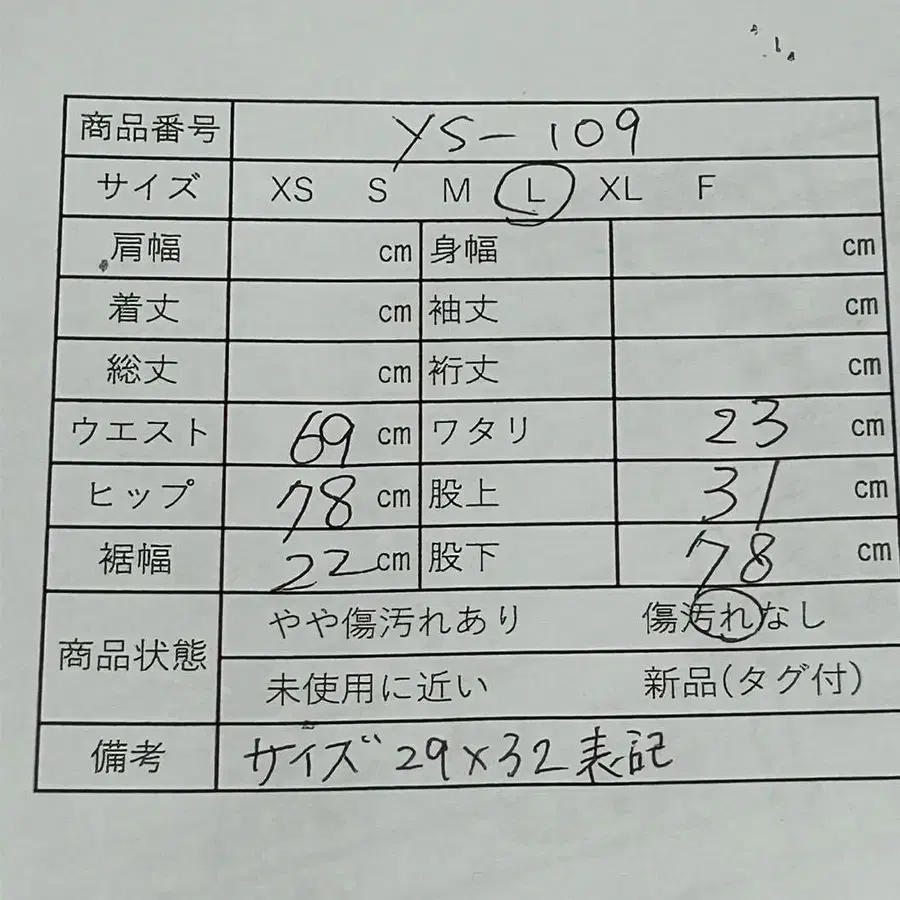 商品番号 YS-109
サイズ XS S M L XL F
肩幅 cm 身幅 cm
着丈 cm 袖丈 cm
総丈 cm 裄丈 cm
ウエスト 69 cm ワタリ 23 cm
ヒップ 78 cm 股上 31 cm
裾幅 22 cm 股下 78 cm
商品状態 やや傷汚れあり 傷汚れなし
未使用に近い 新品(タグ付)
備考 サイズ29×32表記